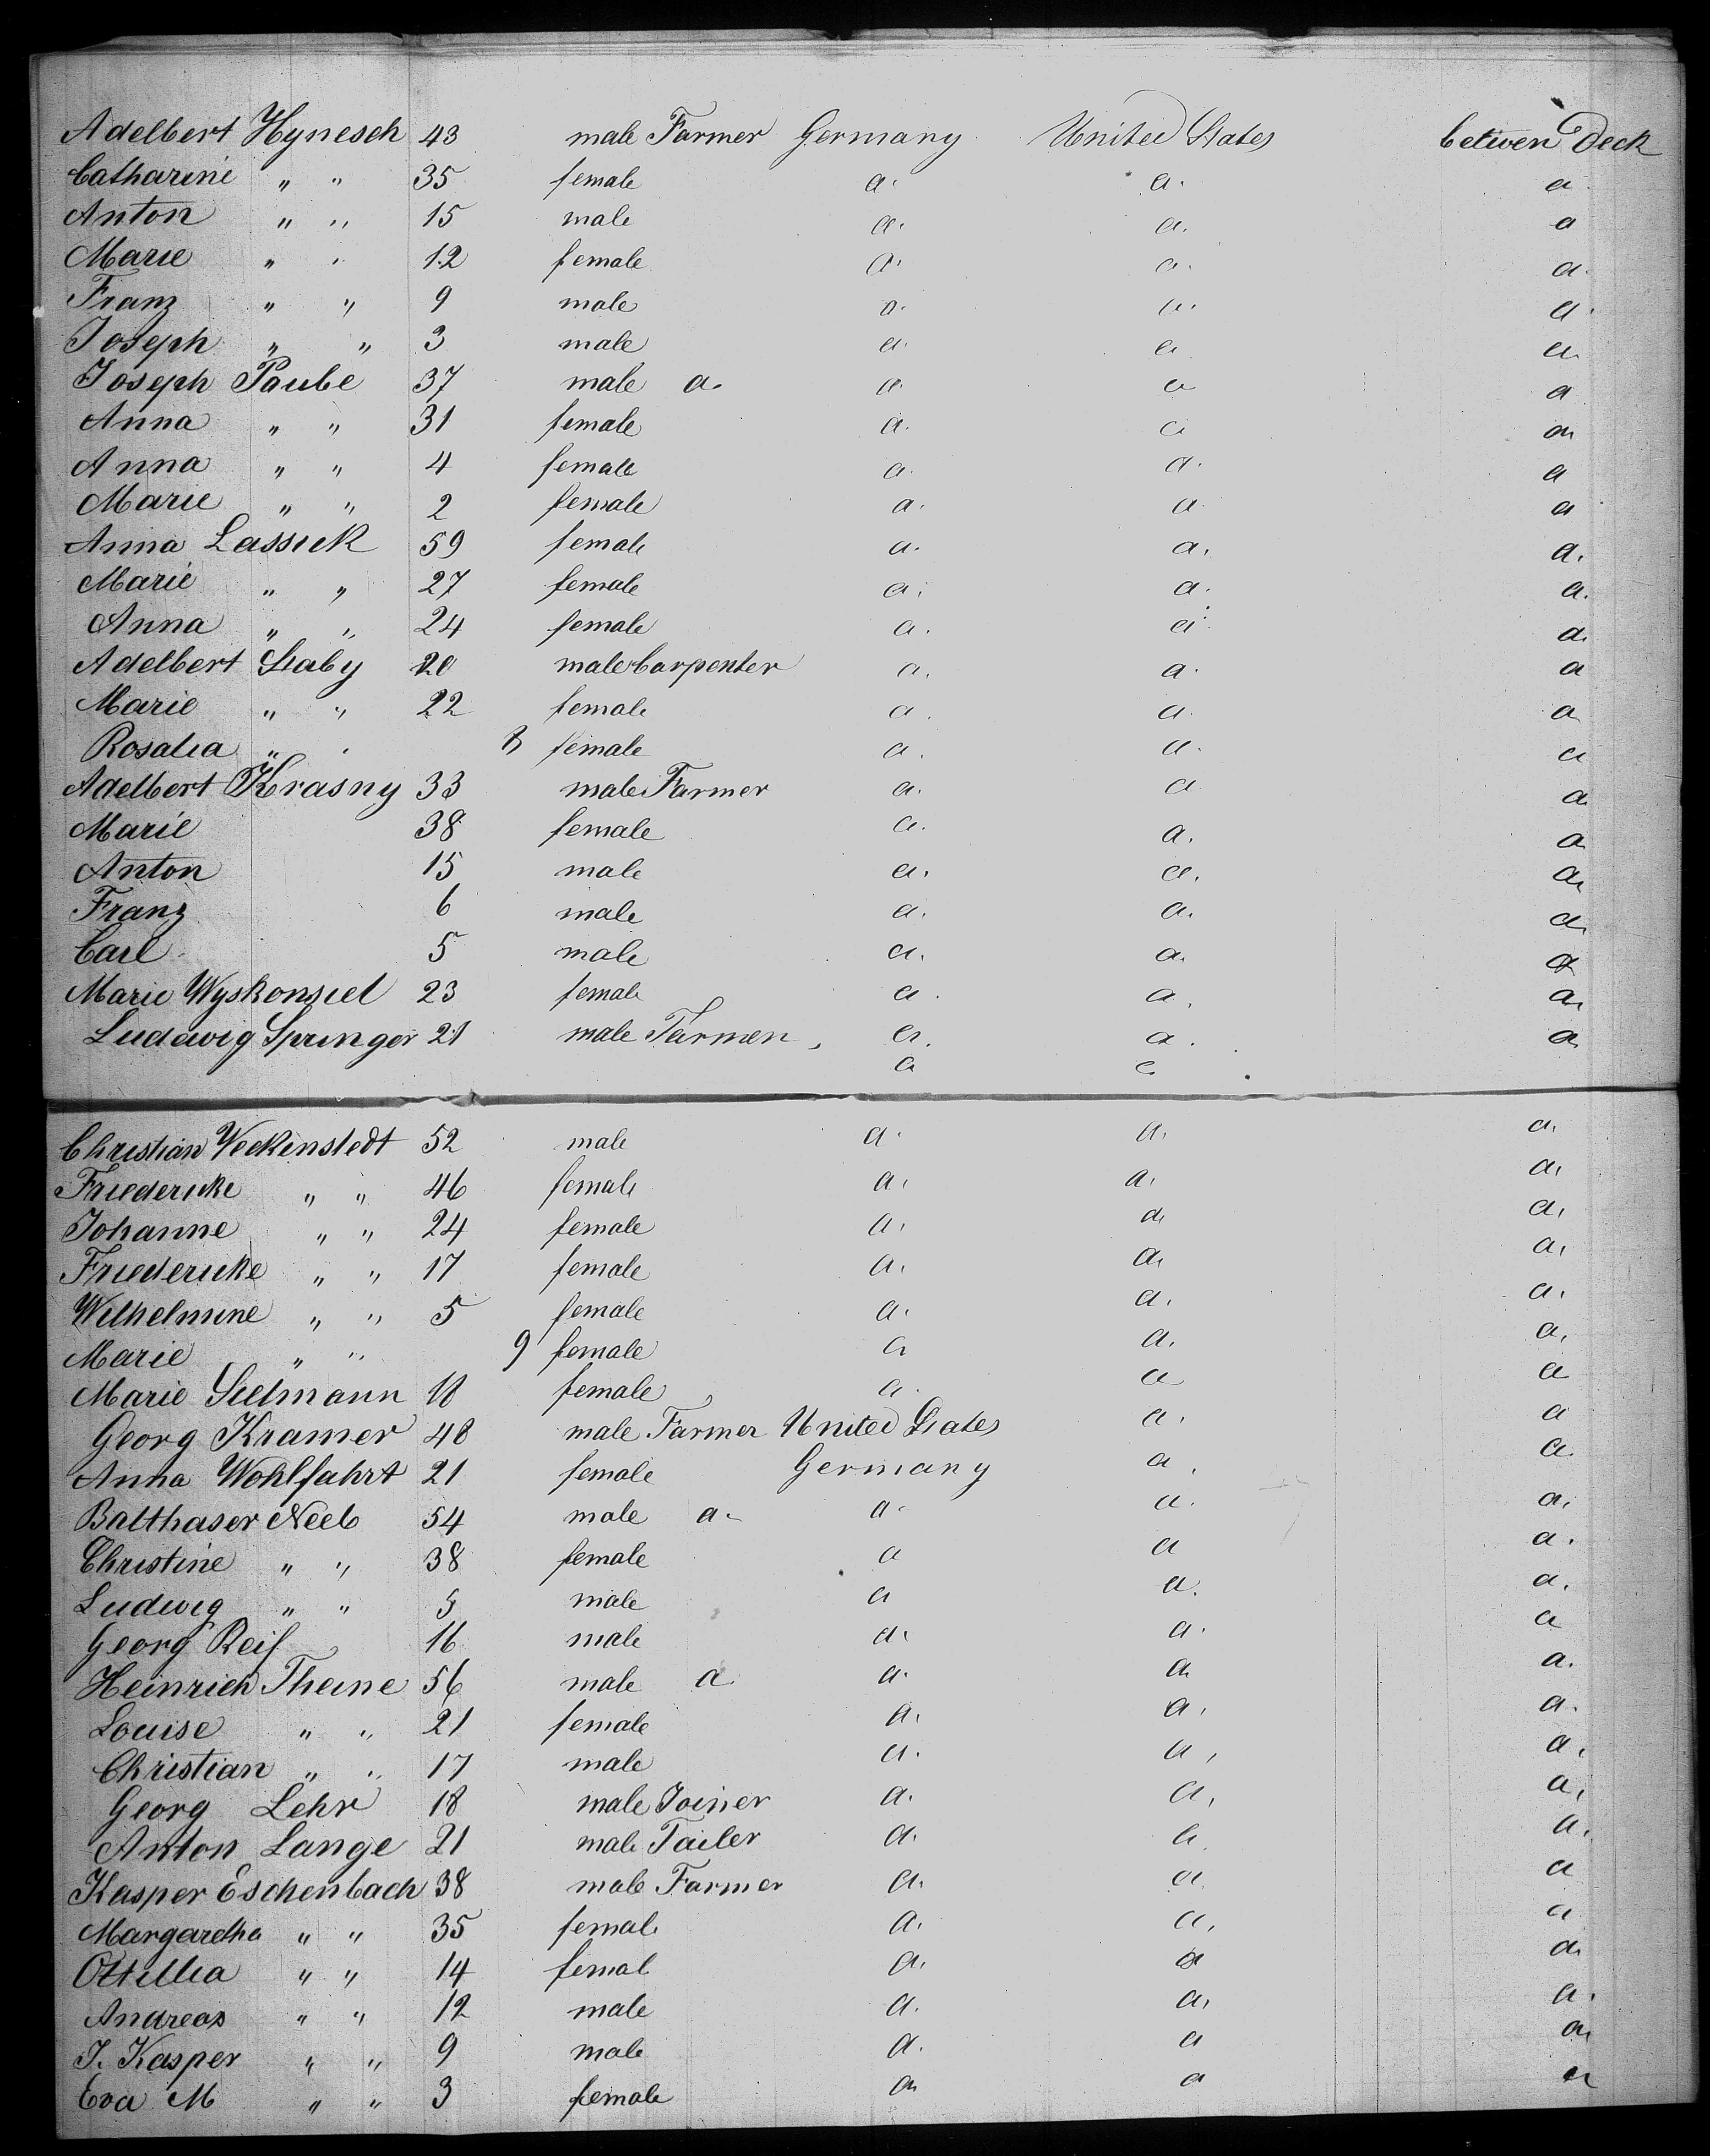 Adelbert Hynesch 43 male Farmer Germany United States betwen Deck
Catharine " " 35 female a. a. a
Anton " " 15 male a. a. a
Marie " " 12 female a. a. a.
Franz " " 9 male a. a. a.
Joseph " " 3 male a. a a.
Joseph Paube 37 male a. a. a a
Anna " " 31 female a. a a
Anna " " 4 female a. a. a
Marie " " 2 female a. a a
Anna Lassick 59 female a. a. a.
Marie " " 27 female a. a. a.
Anna " " 24 female a. a. a.
Adelbert Staby 20 male Carpenter a. a. a
Marie " " 22 female a. a. a
Rosalia " " 8 female a. a. a
Adelbert Krasny 33 male Farmer a. a a
Marie 38 female a. a. a
Anton 15 male a. a. a
Franz 6 male a. a. a
Carl 5 male a. a. a
Marie Wyskonsiel 23 female a. a. a
Ludawig Springer 21 male Farmer a. a. a
a a
Christian Weckenstedt 52 male a. a. a.
Friedericke " " 46 female a. a. a.
Johanne " " 24 female a. a. a.
Friedericke " " 17 female a. a. a.
Wilhelmine " " 5 female a. a. a.
Marie " " 9 female a a. a.
Marie Sielmann 18 female a. a a
Georg Kramer 48 male Farmer United States a. a
Anna Wohlfahrt 21 female Germany a. a.
Balthaser Neeb 54 male a. a. a. a.
Christine " " 38 female a a a.
Ludwig " " 5 male a a. a.
Georg Reif 16 male a. a. a
Heinrich Theine 56 male a a. a. a.
Louise " " 21 female a. a. a.
Christian " " 17 male a. a. a.
Georg Lehr 18 male Joiner a. a. a.
Anton Lange 21 male Tailer a. a. a.
Kasper Eschenbach 38 male Farmer a. a. a
Margaretha " " 35 female a. a. a
Ottillia " " 14 femal a. a a.
Andreas " " 12 male a. a. a.
J. Kasper " " 9 male a. a a.
Eva M " " 3 female a. a a